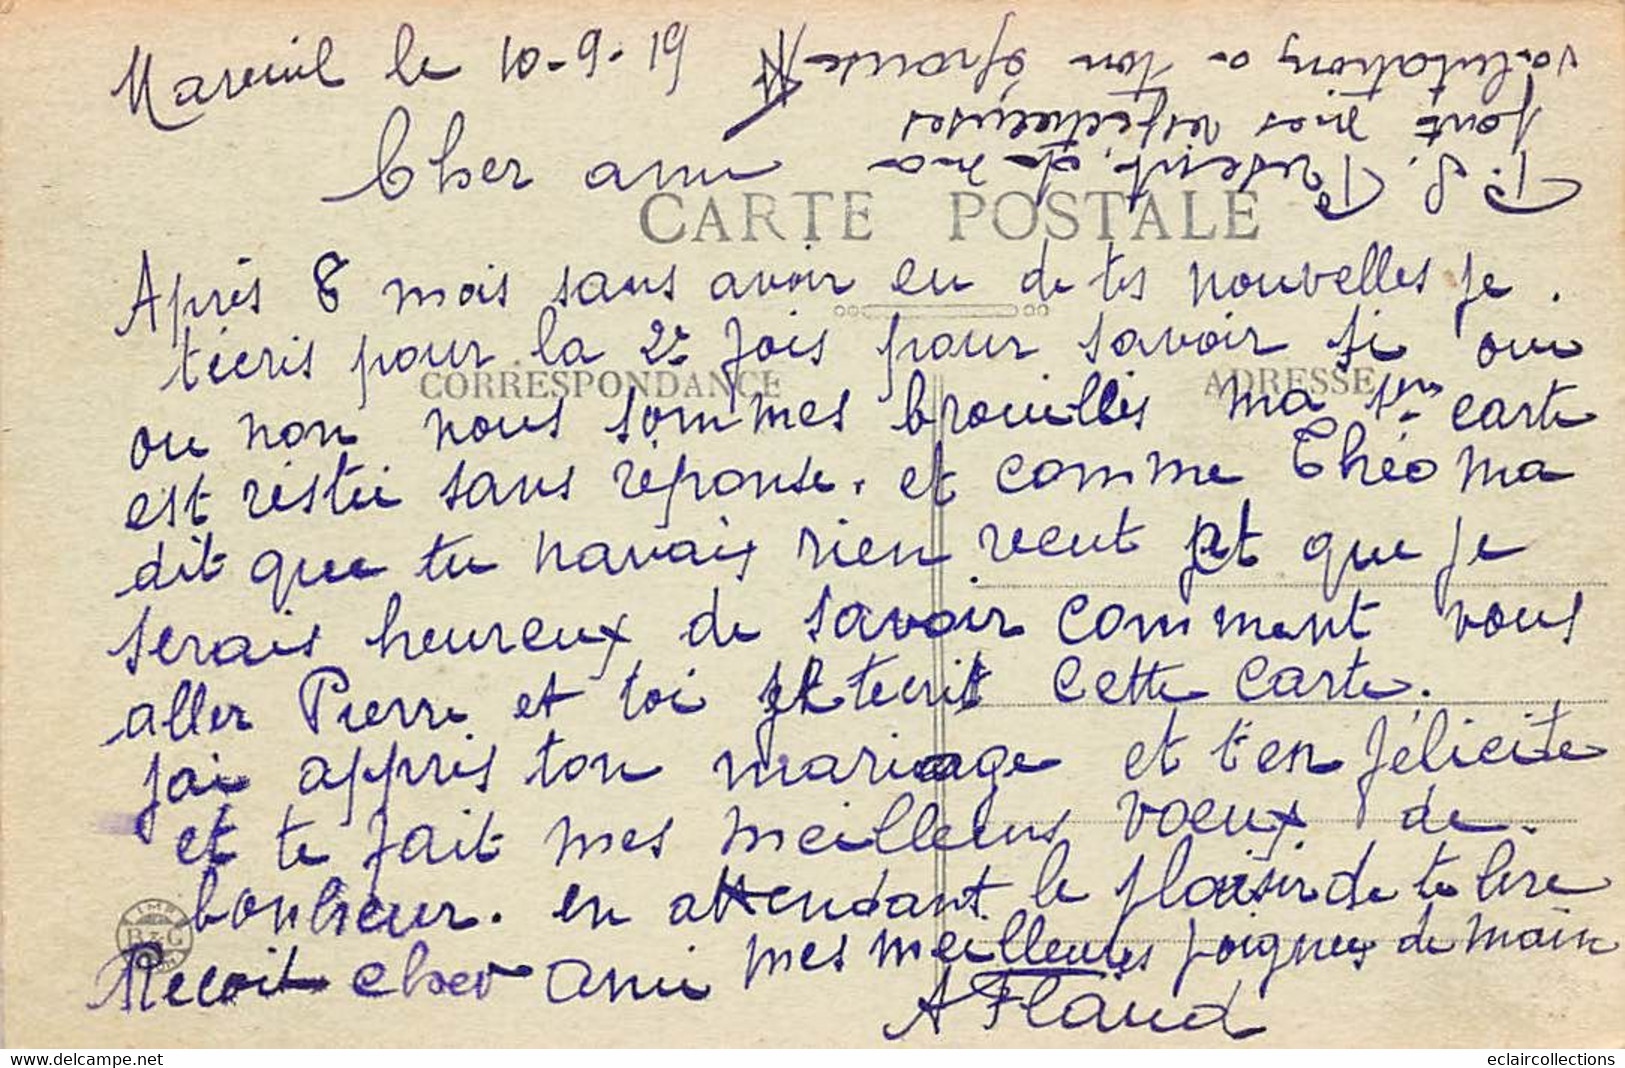 Mareuil le 10-9-19
Cher ami
CARTE POSTALE
Après 8 mois sans avoir eu de tes nouvelles je
técris pour la 2e fois pour savoir si oui
CORRESPONDANCE
ADRESSE
ou non nous sommes brouillés ma 1ère carte
est restée sans réponse. et comme Théo ma
dit que tu navais rien recut et que je
serais heureux de savoir comment vous
aller Pierre et toi je técrit cette carte.
jai appris ton mariage et t'en félicite
et te fait mes meilleurs voeux de
bonheur. en attendant le plaisir de te lire
Recoit cher ami mes meilleures poignées de main
A Flaud
P.S.
font mes respectueuses
salutations a ton épouse
eclaircollections